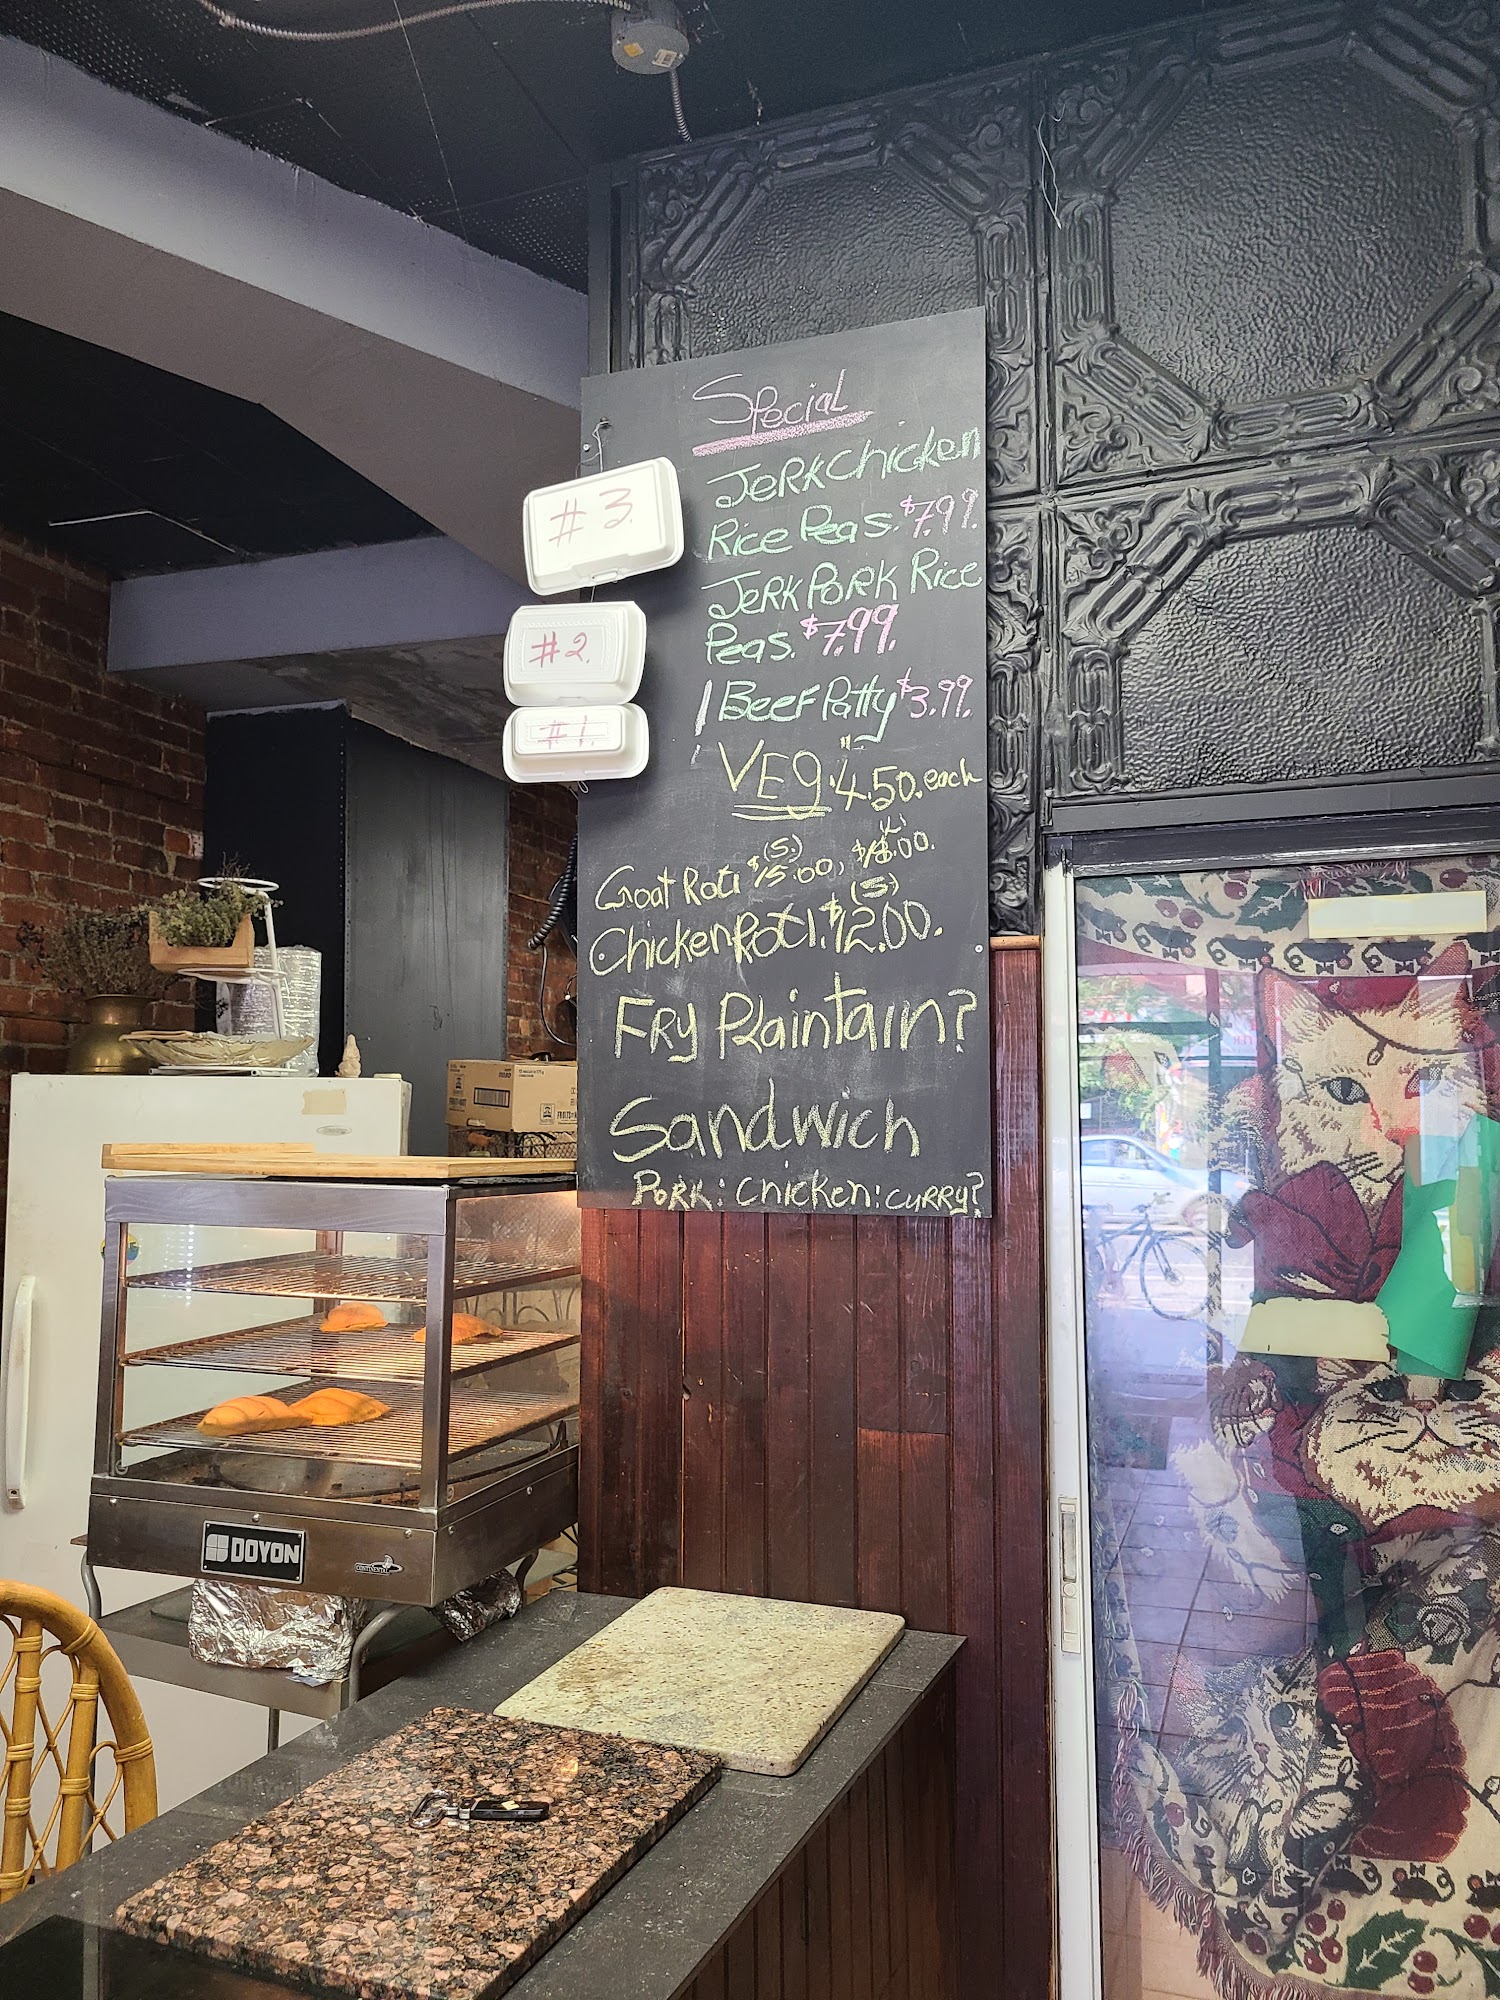 Special
Jerk Chicken
Rice Peas. $7.99.
Jerk Pork Rice
Peas. $7.99.
1 Beef Patty $3.99.
VEg. 4.50. each
(S.)
Goat Roti $15.00, $18.00.
(S)
Chicken Roti. $12.00.
Fry Plaintain?
Sandwich
Pork: Chicken: Curry?
# 3.
#2.
#1.
DOYON
CONTINENTAL